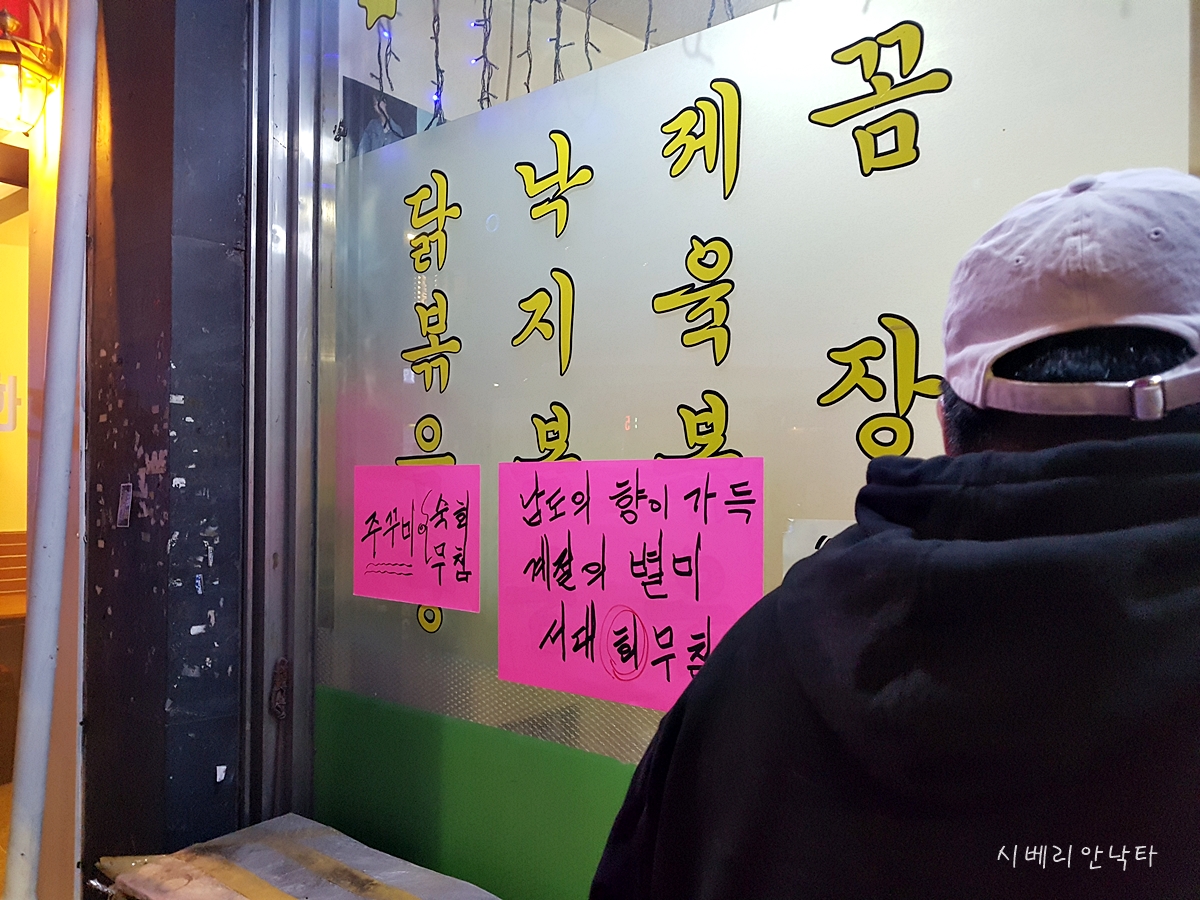 닭볶
낙지
제육
꼼장
주꾸미 숙회
무침
남도의 향이 가득
계절의 별미
서대 회 무침
시베리안낙타